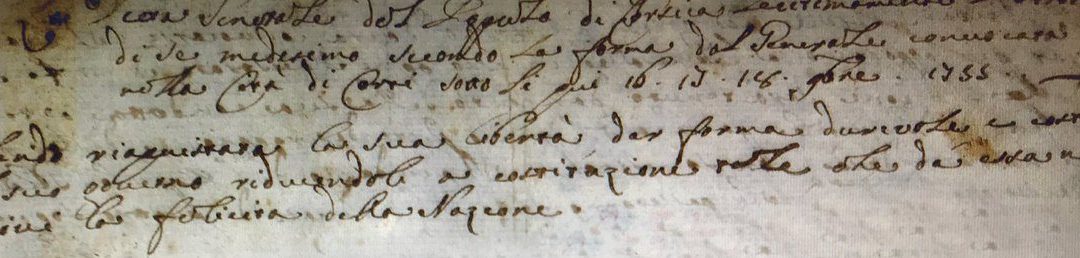 Generale del Popolo di Corsica
di se medesimo secondo la forma dal Generale convocata
nella Città di Corti sotto li 16. 17. 18. 9bre. 1755
riaquistata la sua libertà dar forma durevole e
suo governo riducendoli a costituzione tale che da essa
la felicità della Nazione.